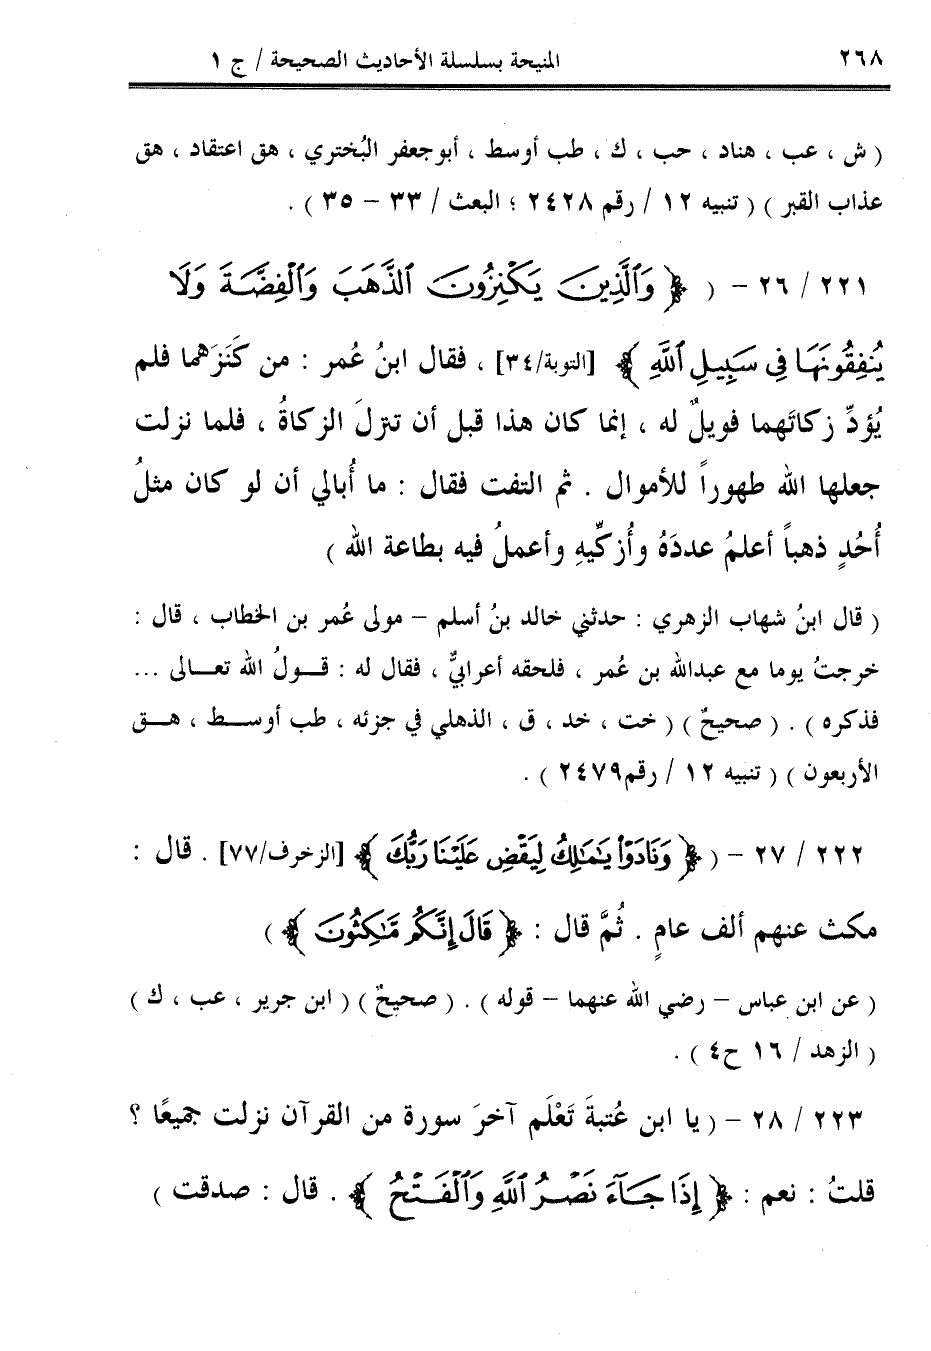 ٢٦٨ المنيحة بسلسلة الأحاديث الصحيحة / ج ١
( ش ، عب ، هناد ، حب ، ك ، طب أوسط ، أبو جعفر البُختري ، هق اعتقاد ، هق
عذاب القبر ) ( تنبيه ١٢ / رقم ٢٤٢٨ ؛ البعث / ٣٣ – ٣٥ ) .
٢٢١ / ٢٦ – ( ﴿ وَٱلَّذِينَ يَكْنِزُونَ ٱلذَّهَبَ وَٱلْفِضَّةَ وَلَا
يُنفِقُونَهَا فِى سَبِيلِ ٱللَّهِ ﴾ [التوبة/٣٤] ، فقال ابنُ عُمر : من كَنَزَهما فلم
يُؤدِّ زكاتَهما فويلٌ له ، إنما كان هذا قبل أن تنزلَ الزكاةُ ، فلما نزلت
جعلها الله طهوراً للأموال . ثم التفت فقال : ما أُبالي أن لو كان مثلُ
أُحُدٍ ذهباً أعلمُ عددَهُ وأُزكِّيهِ وأعملُ فيه بطاعة الله )
( قال ابنُ شهاب الزهري : حدثني خالد بنُ أسلم – مولى عُمر بن الخطاب ، قال :
خرجتُ يوما مع عبدالله بن عُمر ، فلحقه أعرابيٌّ ، فقال له : قـولُ الله تعـالى ...
فذكره ) . ( صحيحٌ ) ( خت ، خد ، ق ، الذهلي في جزئه ، طب أوسـط ، هـق
الأربعون ) ( تنبيه ١٢ / رقم٢٤٧٩ ) .
٢٢٢ / ٢٧ – ( ﴿ وَنَادَوْا۟ يَٰمَٰلِكُ لِيَقْضِ عَلَيْنَا رَبُّكَ ﴾ [الزخرف/٧٧] . قال :
مكث عنهم ألف عامٍ . ثُمَّ قال : ﴿ قَالَ إِنَّكُم مَّٰكِثُونَ ﴾ )
( عن ابن عباس – رضي الله عنهما – قوله ) . ( صحيحٌ ) ( ابن جرير ، عب ، ك )
( الزهد / ١٦ ح٤ ) .
٢٢٣ / ٢٨ – ( يا ابن عُتبةَ تَعْلَم آخرَ سورة من القرآن نزلت جميعًا ؟
قلتُ : نعم : ﴿ إِذَا جَآءَ نَصْرُ ٱللَّهِ وَٱلْفَتْحُ ﴾ . قال : صدقت )